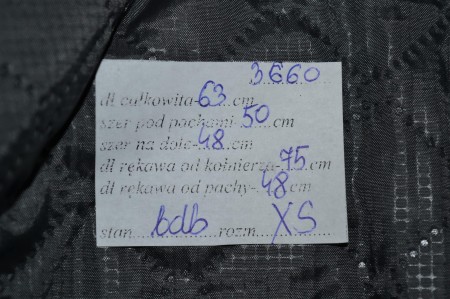 3660
dł całkowita-63.cm
szer pod pachami-50cm
szer na dole-48.cm
dł rękawa od kołnierza-75cm
dł rękawa od pachy-48cm
stan....bdb......rozm...XS......